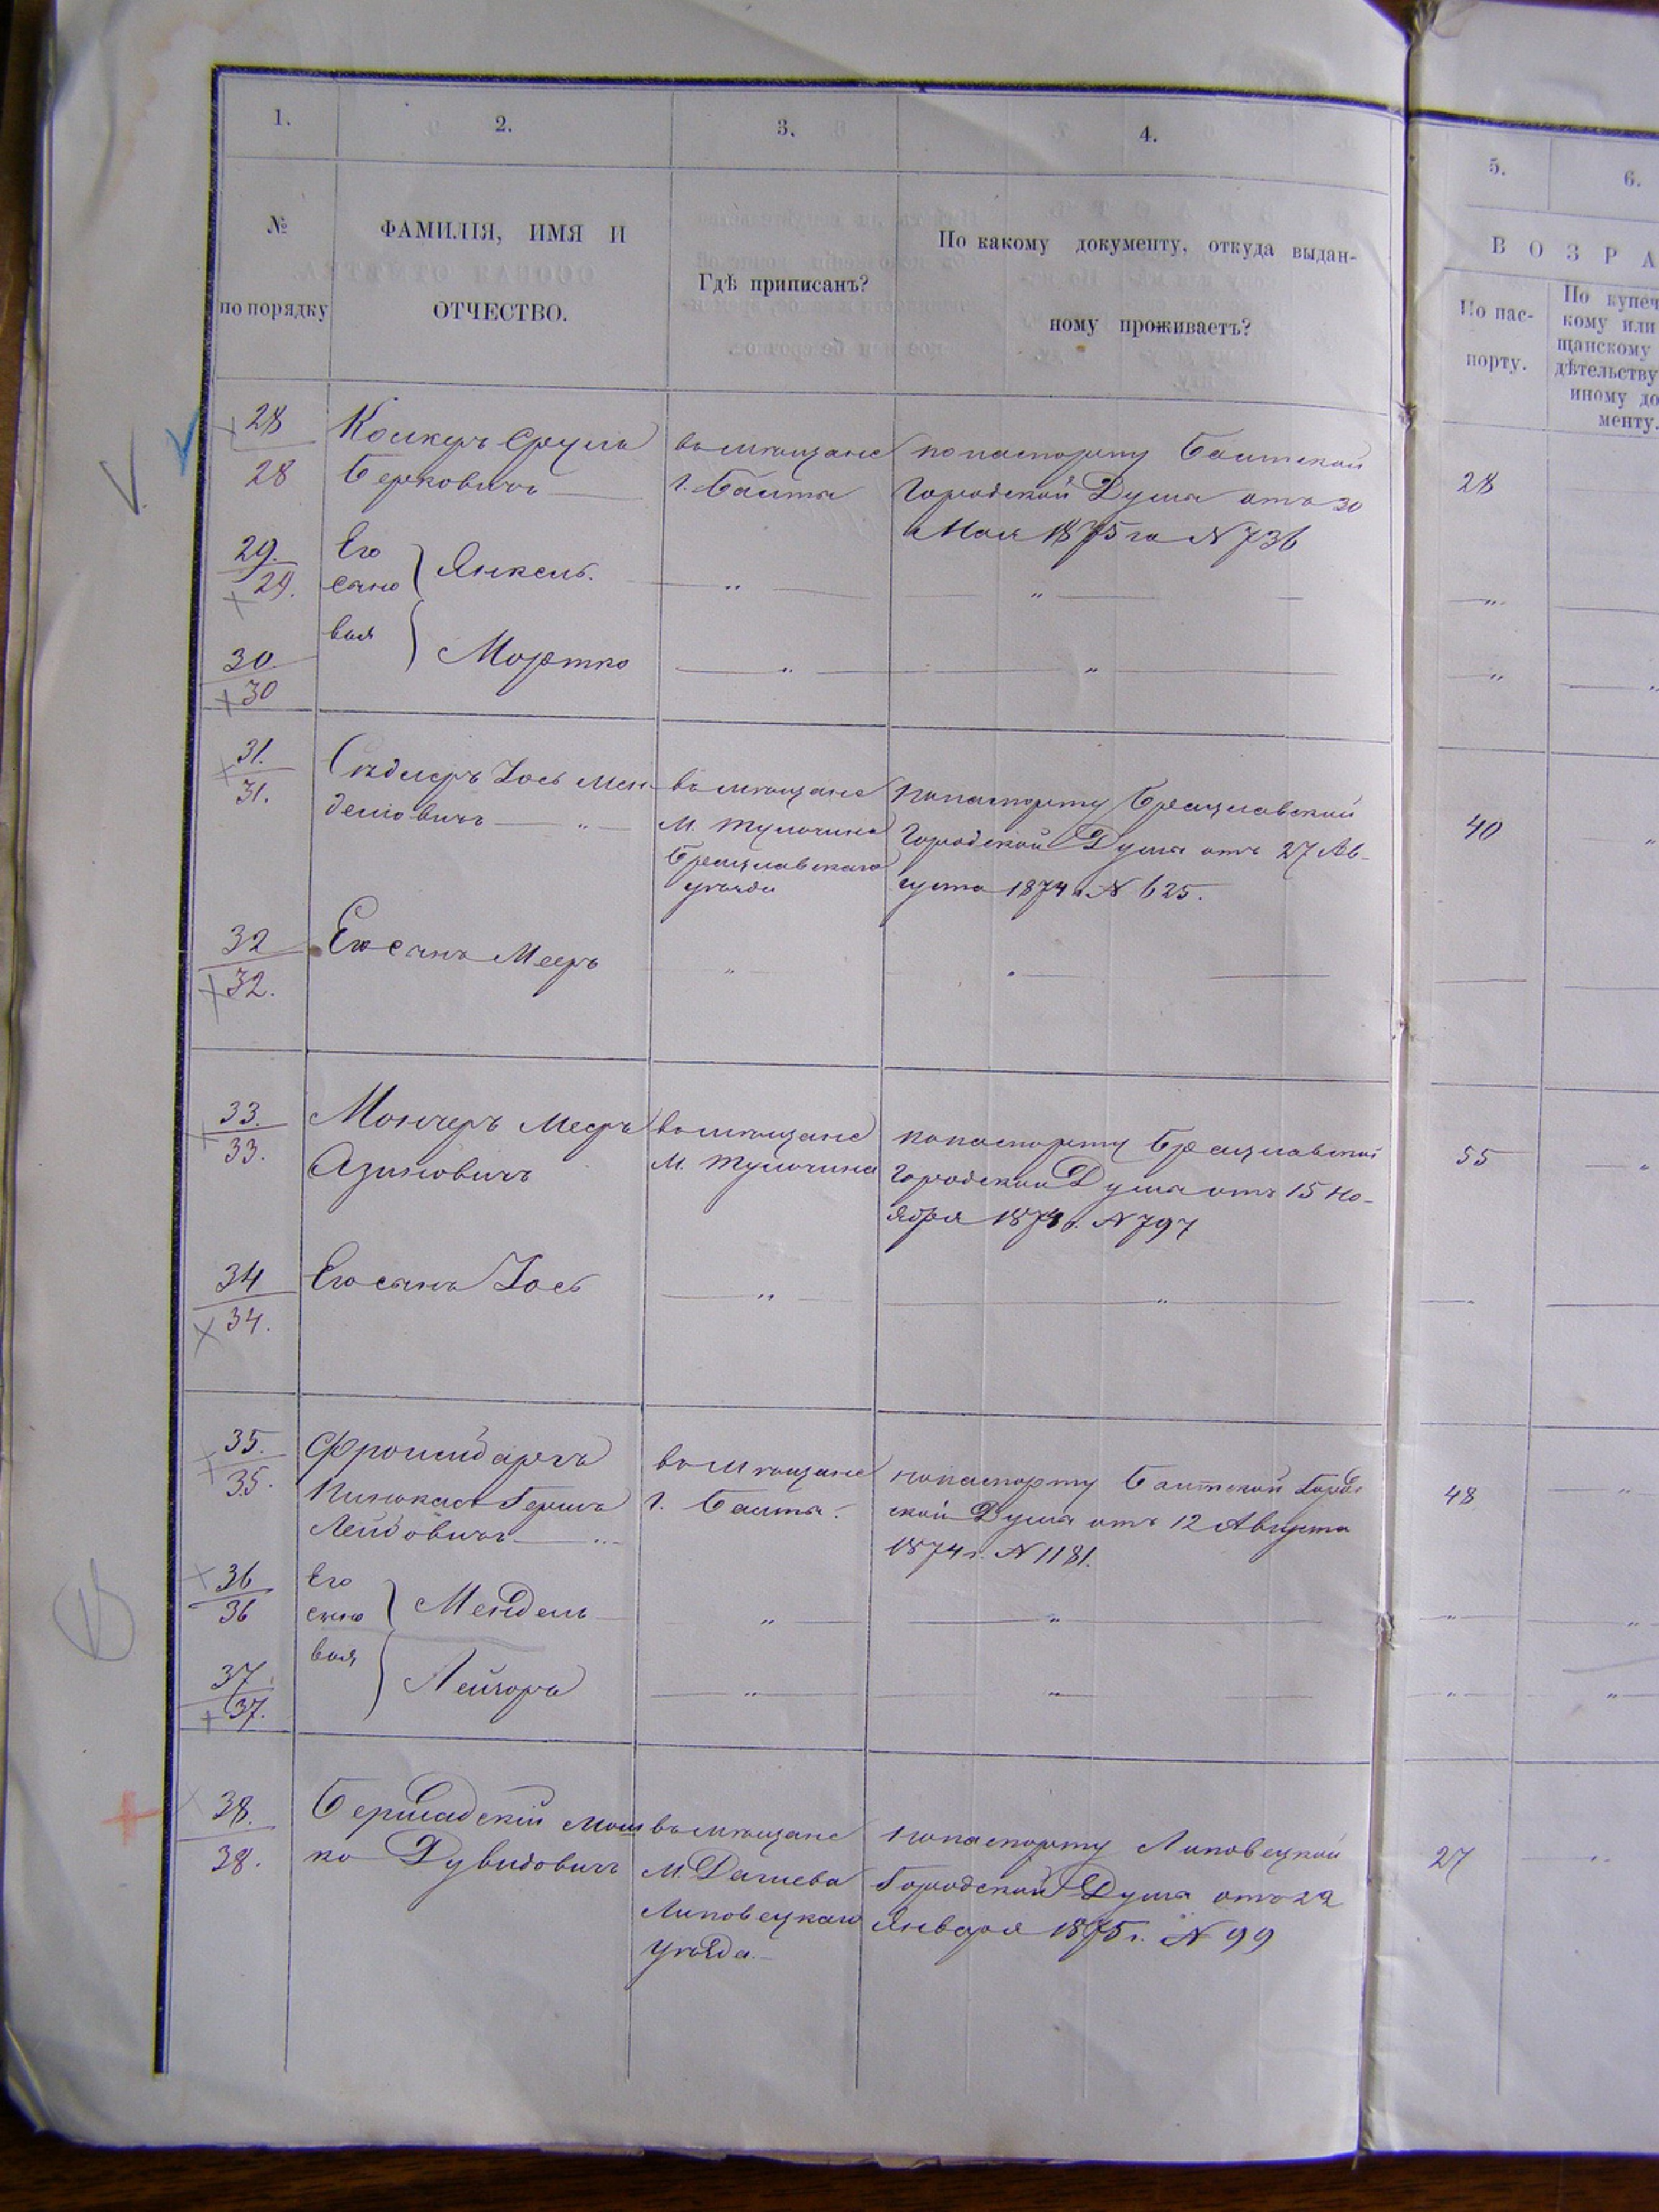 1. 2. 3. 4.
5. 6.
№
по порядку
ФАМИЛІЯ, ИМЯ И
ОТЧЕСТВО.
Гдѣ приписанъ?
По какому документу, откуда выдан-
ному проживаетъ?
В О З Р А
По пас-
порту.
По купеч
кому или
щанскому
дѣтельству
иному до
менту.
28
28
Колкеръ Сруль
Берковичъ
въ мѣщане
г. Балта
по паспорту Балтской
Городской Думы отъ 30
Мая 1875 го N 736
28
29.
29.
Его
сыно
Янкель.
30
30
вья
Мортко
31.
31.
Сѣдлеръ Іось Мен-
делiовичъ
въ мѣщане
М. Тульчина
Брацлавскаго
уѣзда
по паспорту Брацлавской
Городской Думы отъ 27 Ав-
густа 1874 г. N 625.
40
32
32.
Его сынъ Мееръ
33.
33.
Мончеръ Мееръ
Азиковичъ
въ мѣщане
М. Тульчина
по паспорту Брацлавской
Городской Думы отъ 15 Но-
ября 1874 г. N 797
55
34
34.
Его сынъ Іось
35.
35.
Пинькас Гершъ
Лейбовичъ
въ мѣщане
г. Балта.
по паспорту Балтской Город
ской Думы отъ 12 Августа
1874 г. N 1181.
48
36
36
Его
сыно
Мендель
37
37.
вья
Лейзоръ
38.
38.
Бершадскій Мош
ко Дувидовичъ
въ мѣщане
М. Дашева
Липовецкаго
Уѣзда.
по паспорту Липовецкой
Городской Думы отъ 22
Января 1875 г. N 99
27